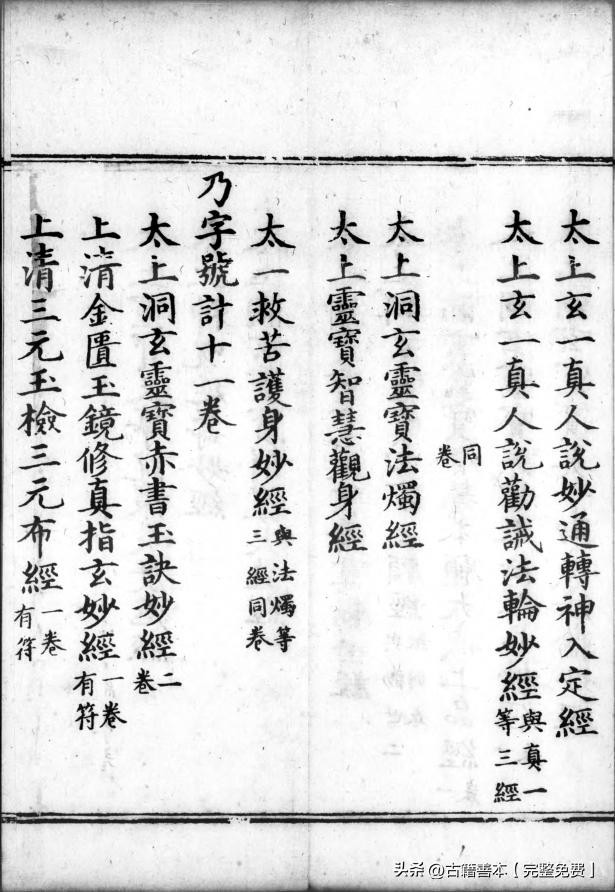 太上玄一真人說妙通轉神入定經
太上玄一真人說勸誡法輪妙經與真一等三經
同卷
太上洞玄靈寶法燭經
太上靈寶智慧觀身經
太一救苦護身妙經與法燭等三經同卷
乃字號計十一卷
太上洞玄靈寶赤書玉訣妙經二卷
上清金匱玉鏡修真指玄妙經一卷有符
上清三元玉檢三元布經一卷有符
头条@古籍善本【完整免费】